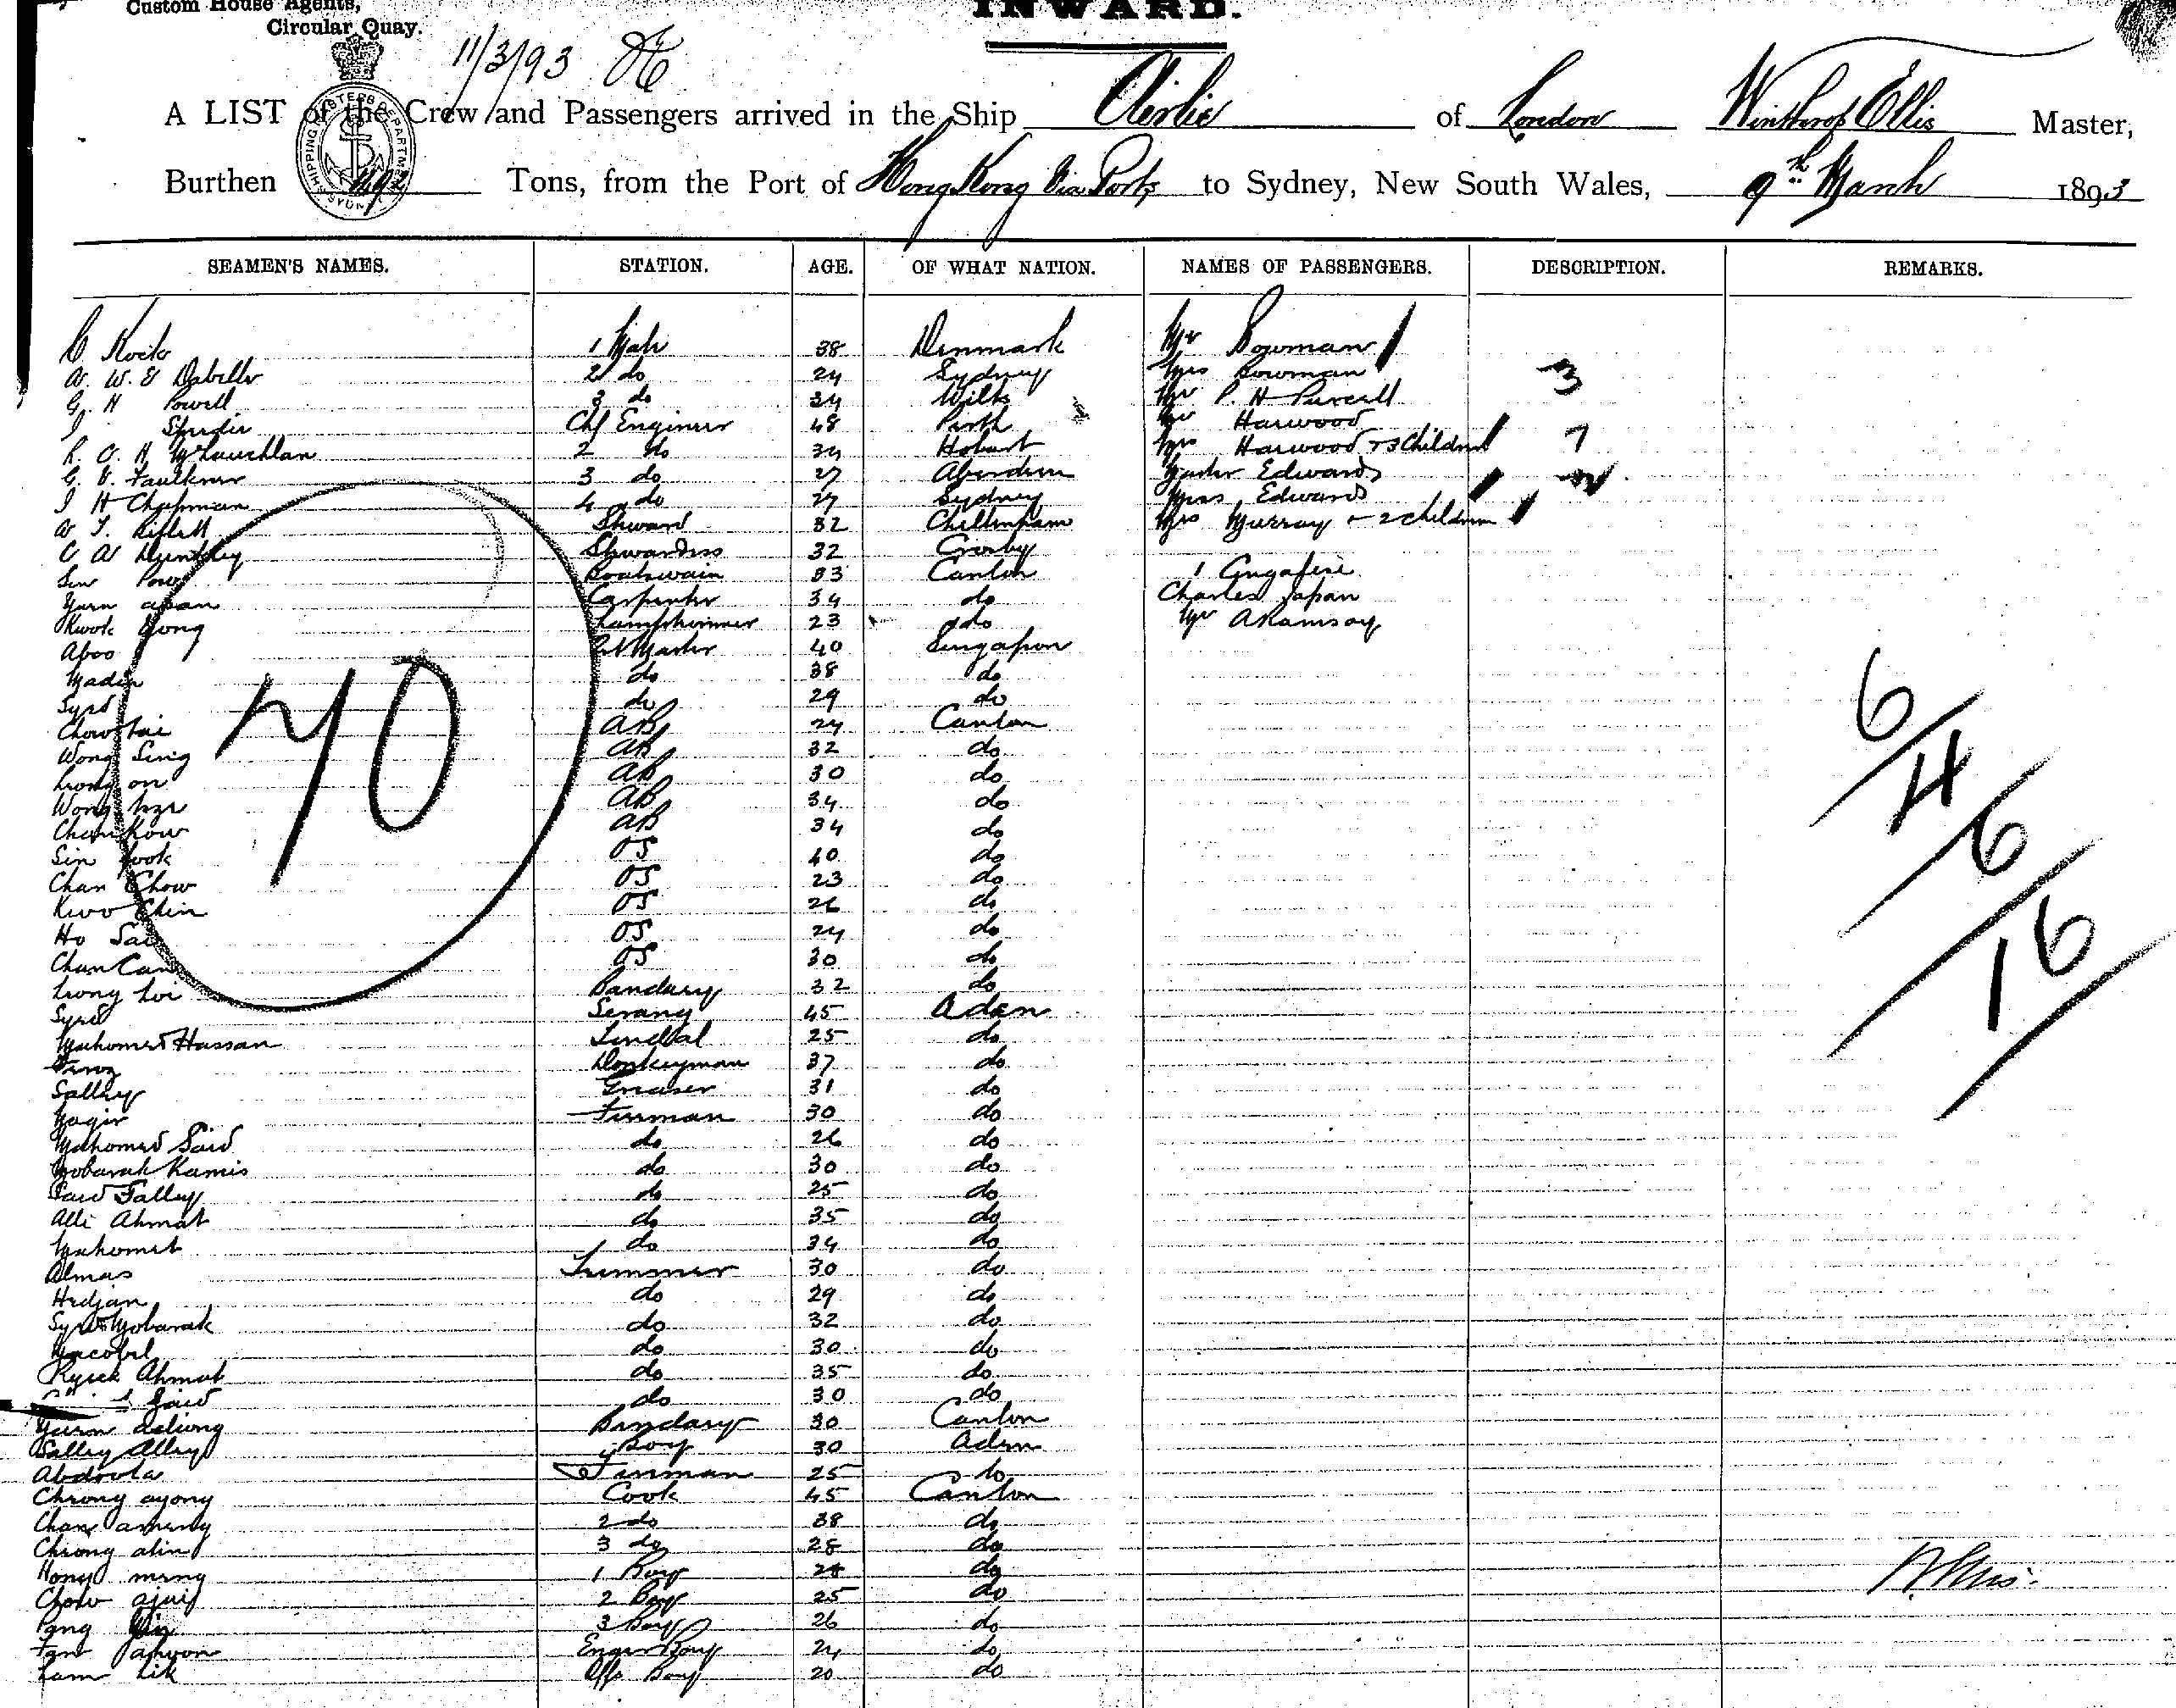 Custom House Agents,
Circular Quay.
INWARD.
11/3/93
A LIST of the Crew and Passengers arrived in the Ship Airlie of London Winthrop Ellis Master,
Burthen Tons, from the Port of Hong Kong Via Ports to Sydney, New South Wales, 9th March 1893
SHIPPING MASTERS DEPARTMENT SYDNEY
SEAMEN'S NAMES. STATION. AGE. OF WHAT NATION. NAMES OF PASSENGERS. DESCRIPTION. REMARKS.
C 1 Mate 38 Denmark Mr Bowman
A. W. E 2 do 24 Sydney Mrs Bowman 3
G. H Powell 3 do 34 Wilts Mr P. H Purcell
Chf Engineer 48 Perth Mr Harwood
R. O. H McLauchlan 2 do 34 Hobart Mrs Harwood + 3 Children 7
G. V. Faulkner 3 do 27 Aberdeen Master Edwards
J H Chapman 4 do 27 Sydney Miss Edwards
Steward 32 Cheltenham Mrs Murray + 2 children
C A Huntley Stewardess 32 Crosby
Sin Boatswain 33 Canton 1 Cingalese
Yuen Carpenter 34 do Charles Japan
Kwok Yong Lamptrimmer 23 do Mr A Ramsay
Aboo Qt Master 40 Singapore
Madin do 38 do
Syed do 29 do
Chow Tai AB 24 Canton
Wong Sing AB 32 do
Leong on AB 30 do
Wong AB 34 do
Chan Kow AB 34 do
Sin Fook OS 40 do
Chan Chow OS 23 do
Kwo Chin OS 26 do
Ho Sai OS 24 do
Chan Can OS 30 do
Leong Loi Bandary 32 do
Syed Serang 45 Aden
Mahomed Hassan Tindal 25 do
Firoz Donkeyman 37 do
Salley Greaser 31 do
Fireman 30 do
Mahomed Said do 26 do
Mobarak Kamis do 30 do
Said Salley do 25 do
Alli Ahmat do 35 do
Mahomet do 34 do
Almas Trimmer 30 do
Hedjan do 29 do
Syed Mobarak do 32 do
do 30 do
Ahmat do 35 do
Said do 30 do
Yuen Bandary 30 Canton
Salley Alley Boy 30 Aden
Abdoola Fireman 25 do
Cheong ayong Cook 45 Canton
Chan 2 do 38 do
Cheong alin 3 do 28 do
Hong 1 Boy 28 do
Chow 2 Boy 25 do
Pang 3 Boy 26 do
Fan Engr Boy 24 do
Lam Lik Offs Boy 20 do
70
6
4
6
16
W Ellis